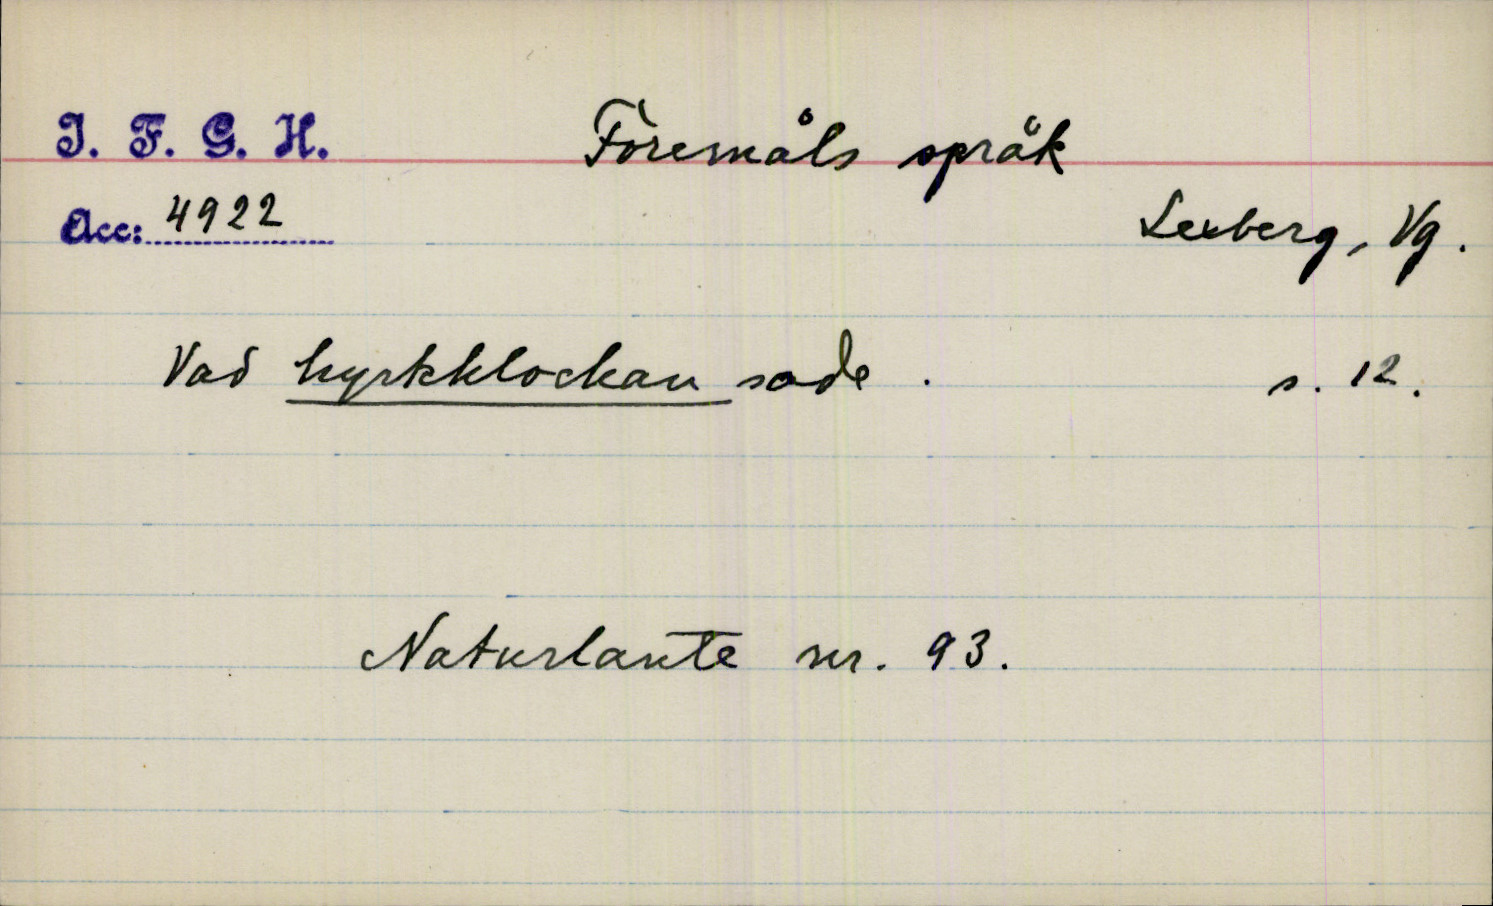 I. F. G. H.
Föremåls språk
Acc: 4922
Lexberg, Vg.
Vad kyrkklockan sade. s. 12.
Naturlaute nr. 93.